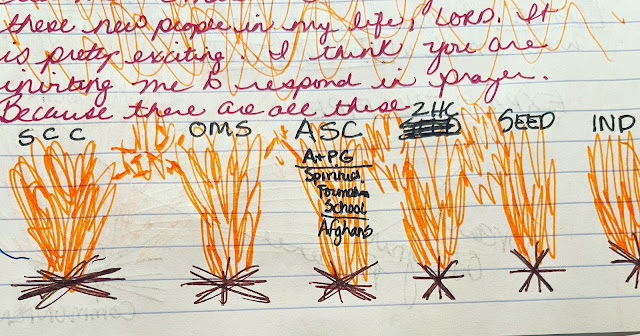 these new people in my life, LORD. It
is pretty exciting. I think you are
inviting me to respond in prayer.
Because there are all these
SCC OMS ASC ZHC SEED IND
A+PG
Spiritual
Formation
School
Afghans